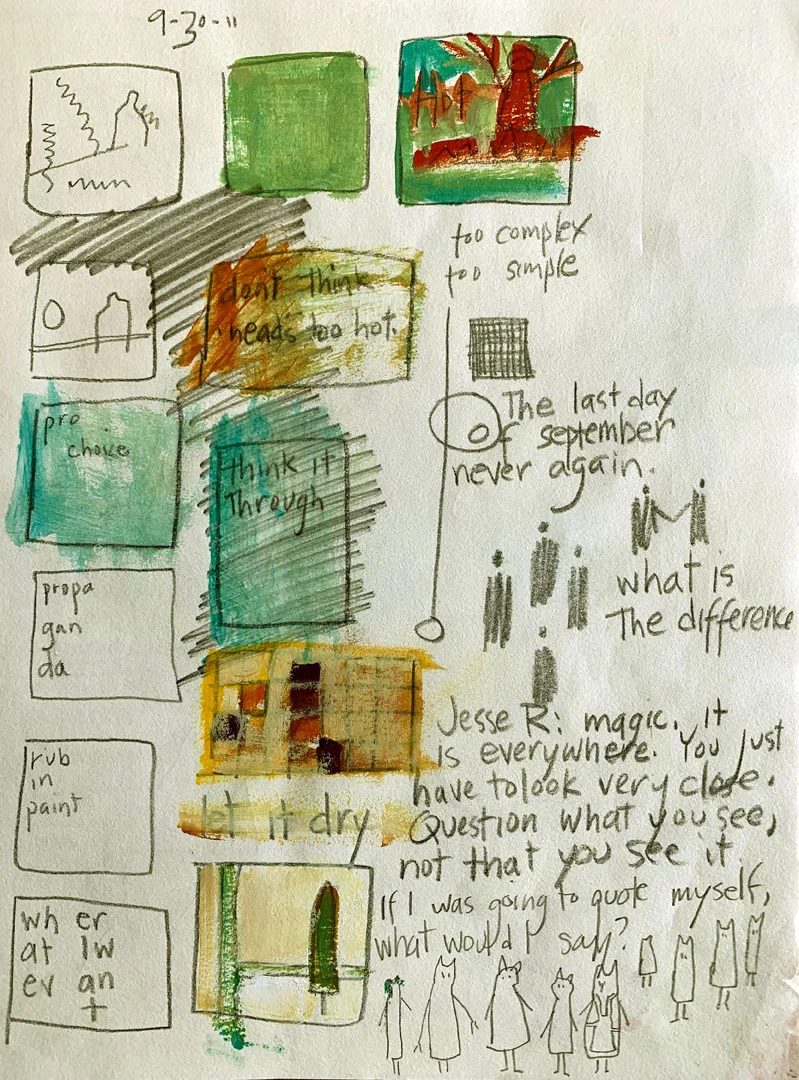 9-30-11
5 min
Hot
too complex
too simple
don't think
heads too hot.
pro
choice
think it
Through
The last day
of september
never again.
what is
The difference
propa
gan
da
rub
in
paint
let it dry
Jesse R: magic. it
is everywhere. You just
have to look very close.
Question what you see,
not that you see it.
If I was going to quote myself,
what would I say?
wh er
at Iw
ev an
t